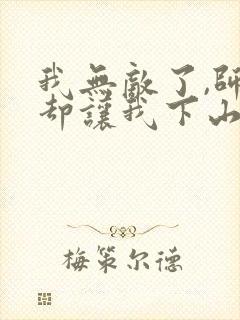 我無敵了,師
却讓我下山
梅策尔德